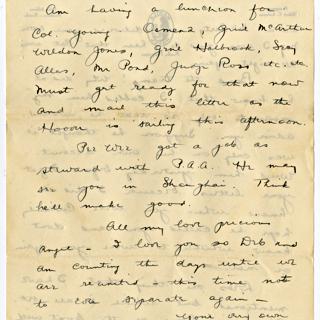 Am having a luncheon for
Col. Young Osmena, Gen'l McArthur
Weldon Jones, Gen'l Holbrook, Sray
Allas, Mr Pond, Judge Ross etc. etc
Must get ready for that now
and mail this letter as the
Hoover is sailing this afternoon.
Pee Wee got a job as
steward with P.A.A. He may
see you in Shanghai. Think
he'll make good.
All my love precious
Angel - I love you so Deb and
am counting the days until we
are reunited - this time not
to ever separate again -
Your very own